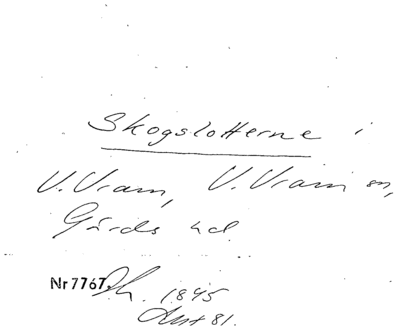 Skogslotterne i
V. Vram, V. Vram sn,
Gärds hd.
Nr 7767. 1845
81.